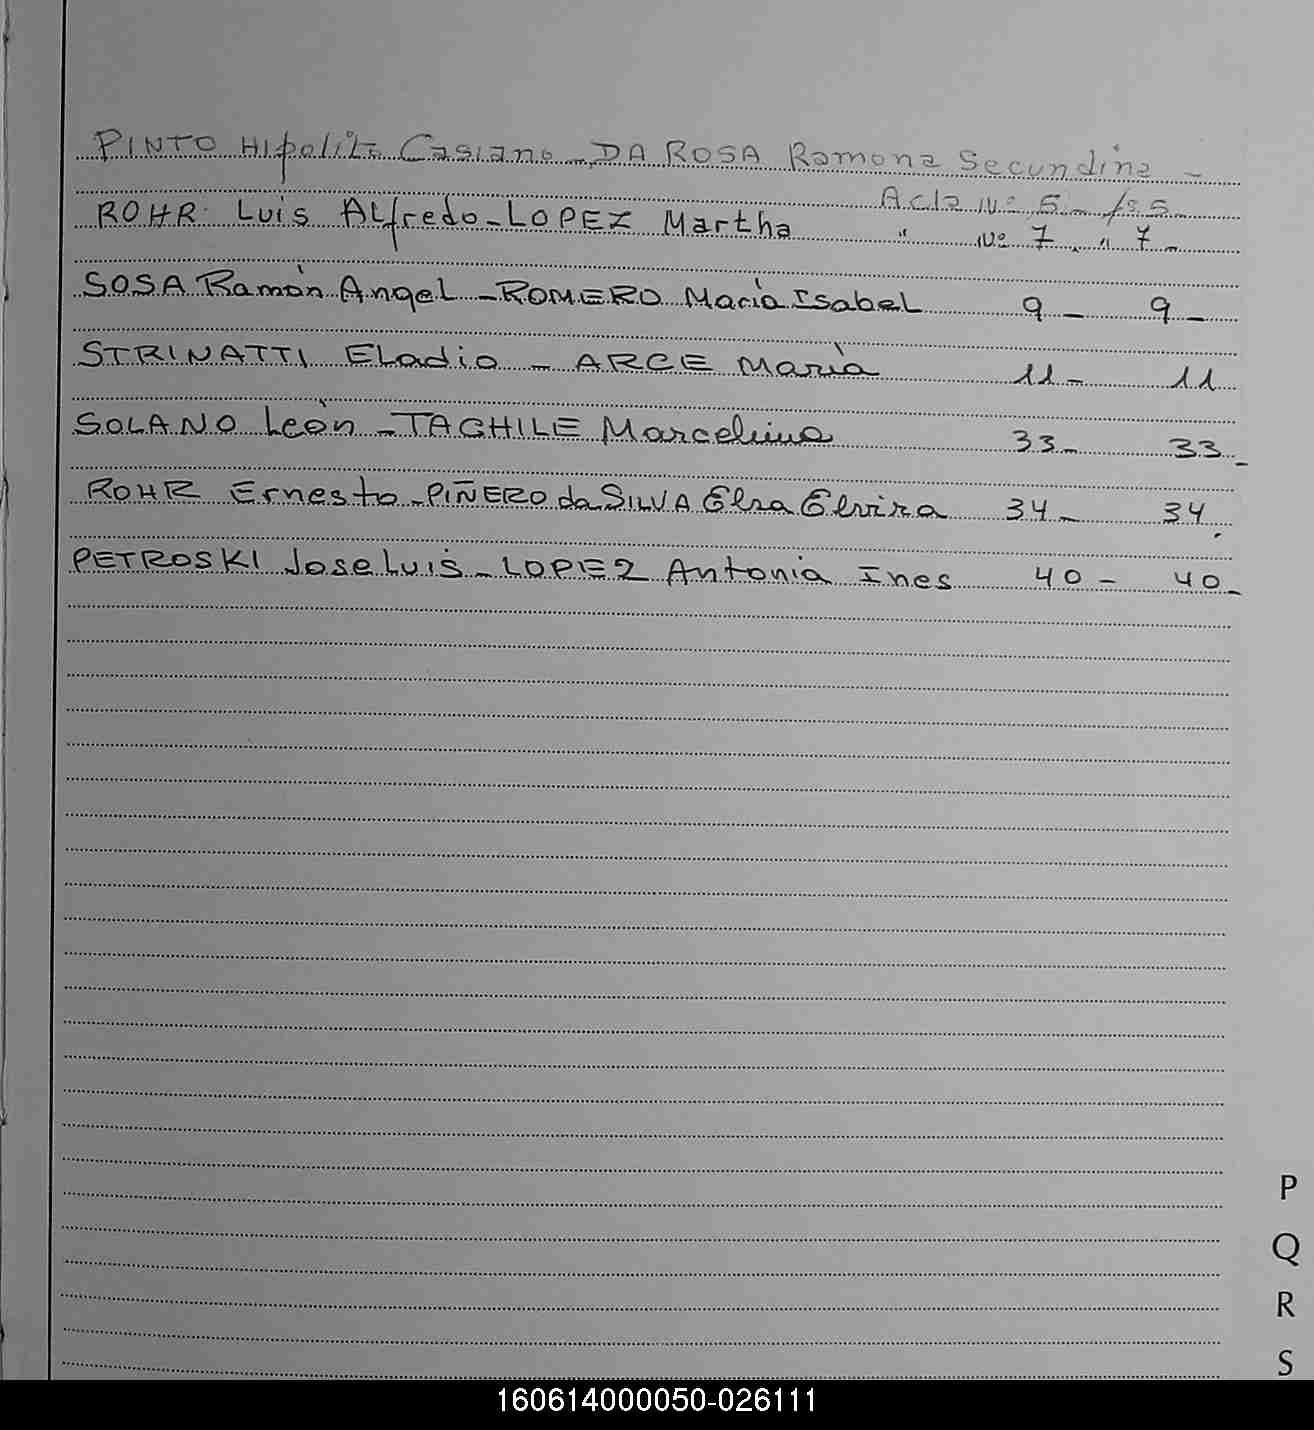 PINTO Hipolito Casiano - DA ROSA Ramona Secundina -
Acta Nº 5 - fº 5 -
ROHR Luis ALfredo - LOPEZ Martha " Nº 7 - " 7 -
SOSA Ramón Angel - ROMERO María Isabel 9 - 9 -
STRINATTI ELadio - ARCE María 11 - 11
SOLANO León - TACHILE Marcelina 33 - 33 -
ROHR Ernesto - PIÑERO da SILVA Elsa Elvira 34 - 34.
PETROSKI Jose Luis - LOPEZ Antonia Ines 40 - 40 -
P
Q
R
S
160614000050-026111